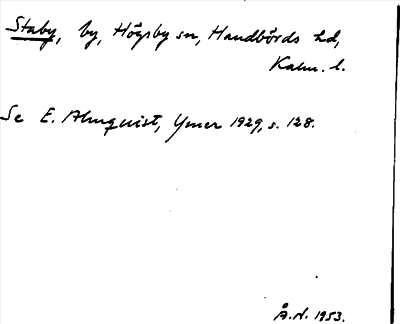 Staby, by, Högsby sn, Handbörds hd,
Kalm. l.
Se E. Almquist, Ymer 1929, s. 128.
Å.N. 1953.